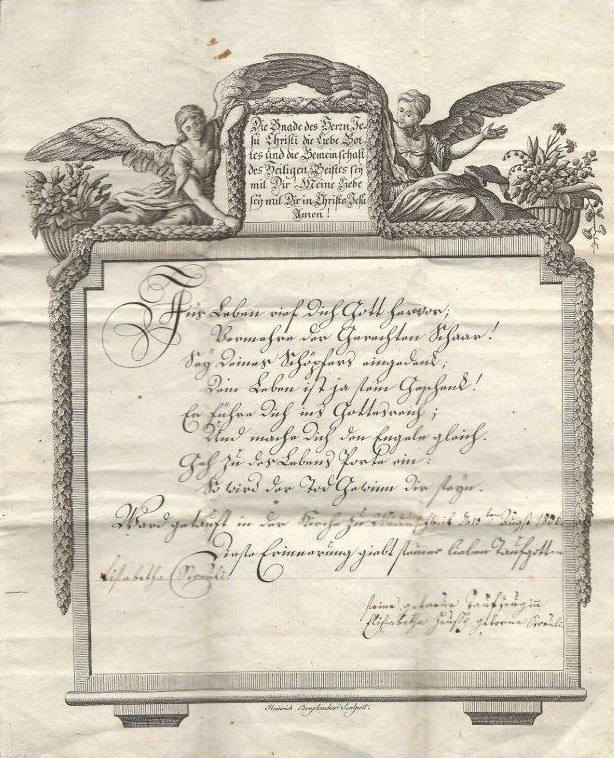 Die Gnade des Herrn Je-
su Christi die Liebe Got-
tes und die Gemeinschaft
des Heiligen Geistes sey
mit Dir! Meine Liebe
sey mit Dir in Christo Jesu
Amen!
Ins Leben rief dich Gott hervor;
Vermehre der Gerechten Schaar!
Sey deines Schöpfers eingedenk;
Dein Leben ist ja sein Geschenk!
Er führe dich ins Gottesreich;
Und mache dich den Engeln gleich.
Geh zu des Lebens Porte ein:
So wird der Tod Gewinn dir seyn.
Ward getauft in der Kirche zu den 10ten August
Diese Erinnerung giebt seiner lieben Taufgotten
Elisabetha
seine getreue Taufzeugin
Elisabetha geborne
Heinrich Bruppacher Sculpsit.